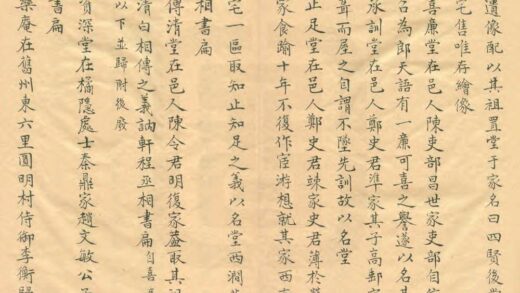 遺像配以其祖置堂于家名曰四賢後堂
宅售唯存繪像
喜廉堂在邑人陳吏部昌世家吏部自
名為郎天語有一廉可喜之譽遂以名其
永訓堂在邑人鄭史君準家其子高郵
葺而屋之自謂不墜先訓故以名堂
止足堂在邑人鄭史君竦家史君薄於
家食踰十年不復作宦游想就其家西
宅一區取知止知足之義以名堂西澗
相書扁
傳清堂在邑人陳令君明復家蓋取其
清白相傳之義訥軒程丞相書扁自喜
以下並歸附後廢
資深堂在橘隱處士秦鼎家趙文敏公
書扁
樂庵在舊州東六里圓明村侍御李衡歸